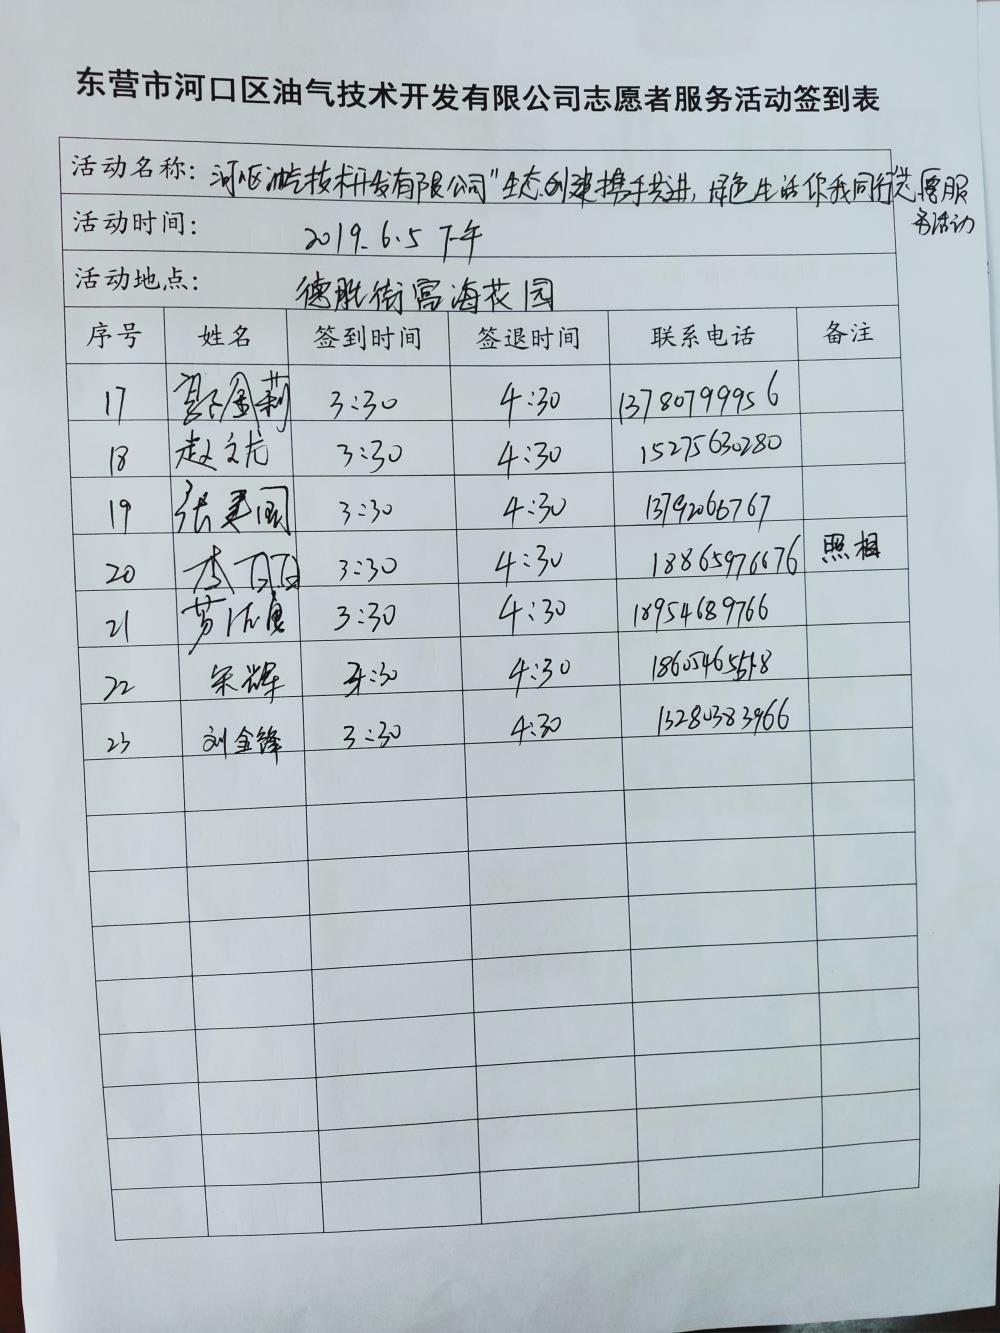 东营市河口区油气技术开发有限公司志愿者服务活动签到表
活动名称：河口区油气技术开发有限公司"生态创建携手共进，绿色生活你我同行"志愿服
务活动
活动时间： 2019.6.5 下午
活动地点： 德胜街富海花园
序号 姓名 签到时间 签退时间 联系电话 备注
17 金莉 3:30 4:30 13780799956
18 赵文龙 3:30 4:30 15275630280
19 张建国 3:30 4:30 13792066767
20 李 3:30 4:30 18865976676 照相
21 3:30 4:30 18954689766
22 宋辉 3:30 4:30
23 刘金锋 3:30 4:30 13280383966